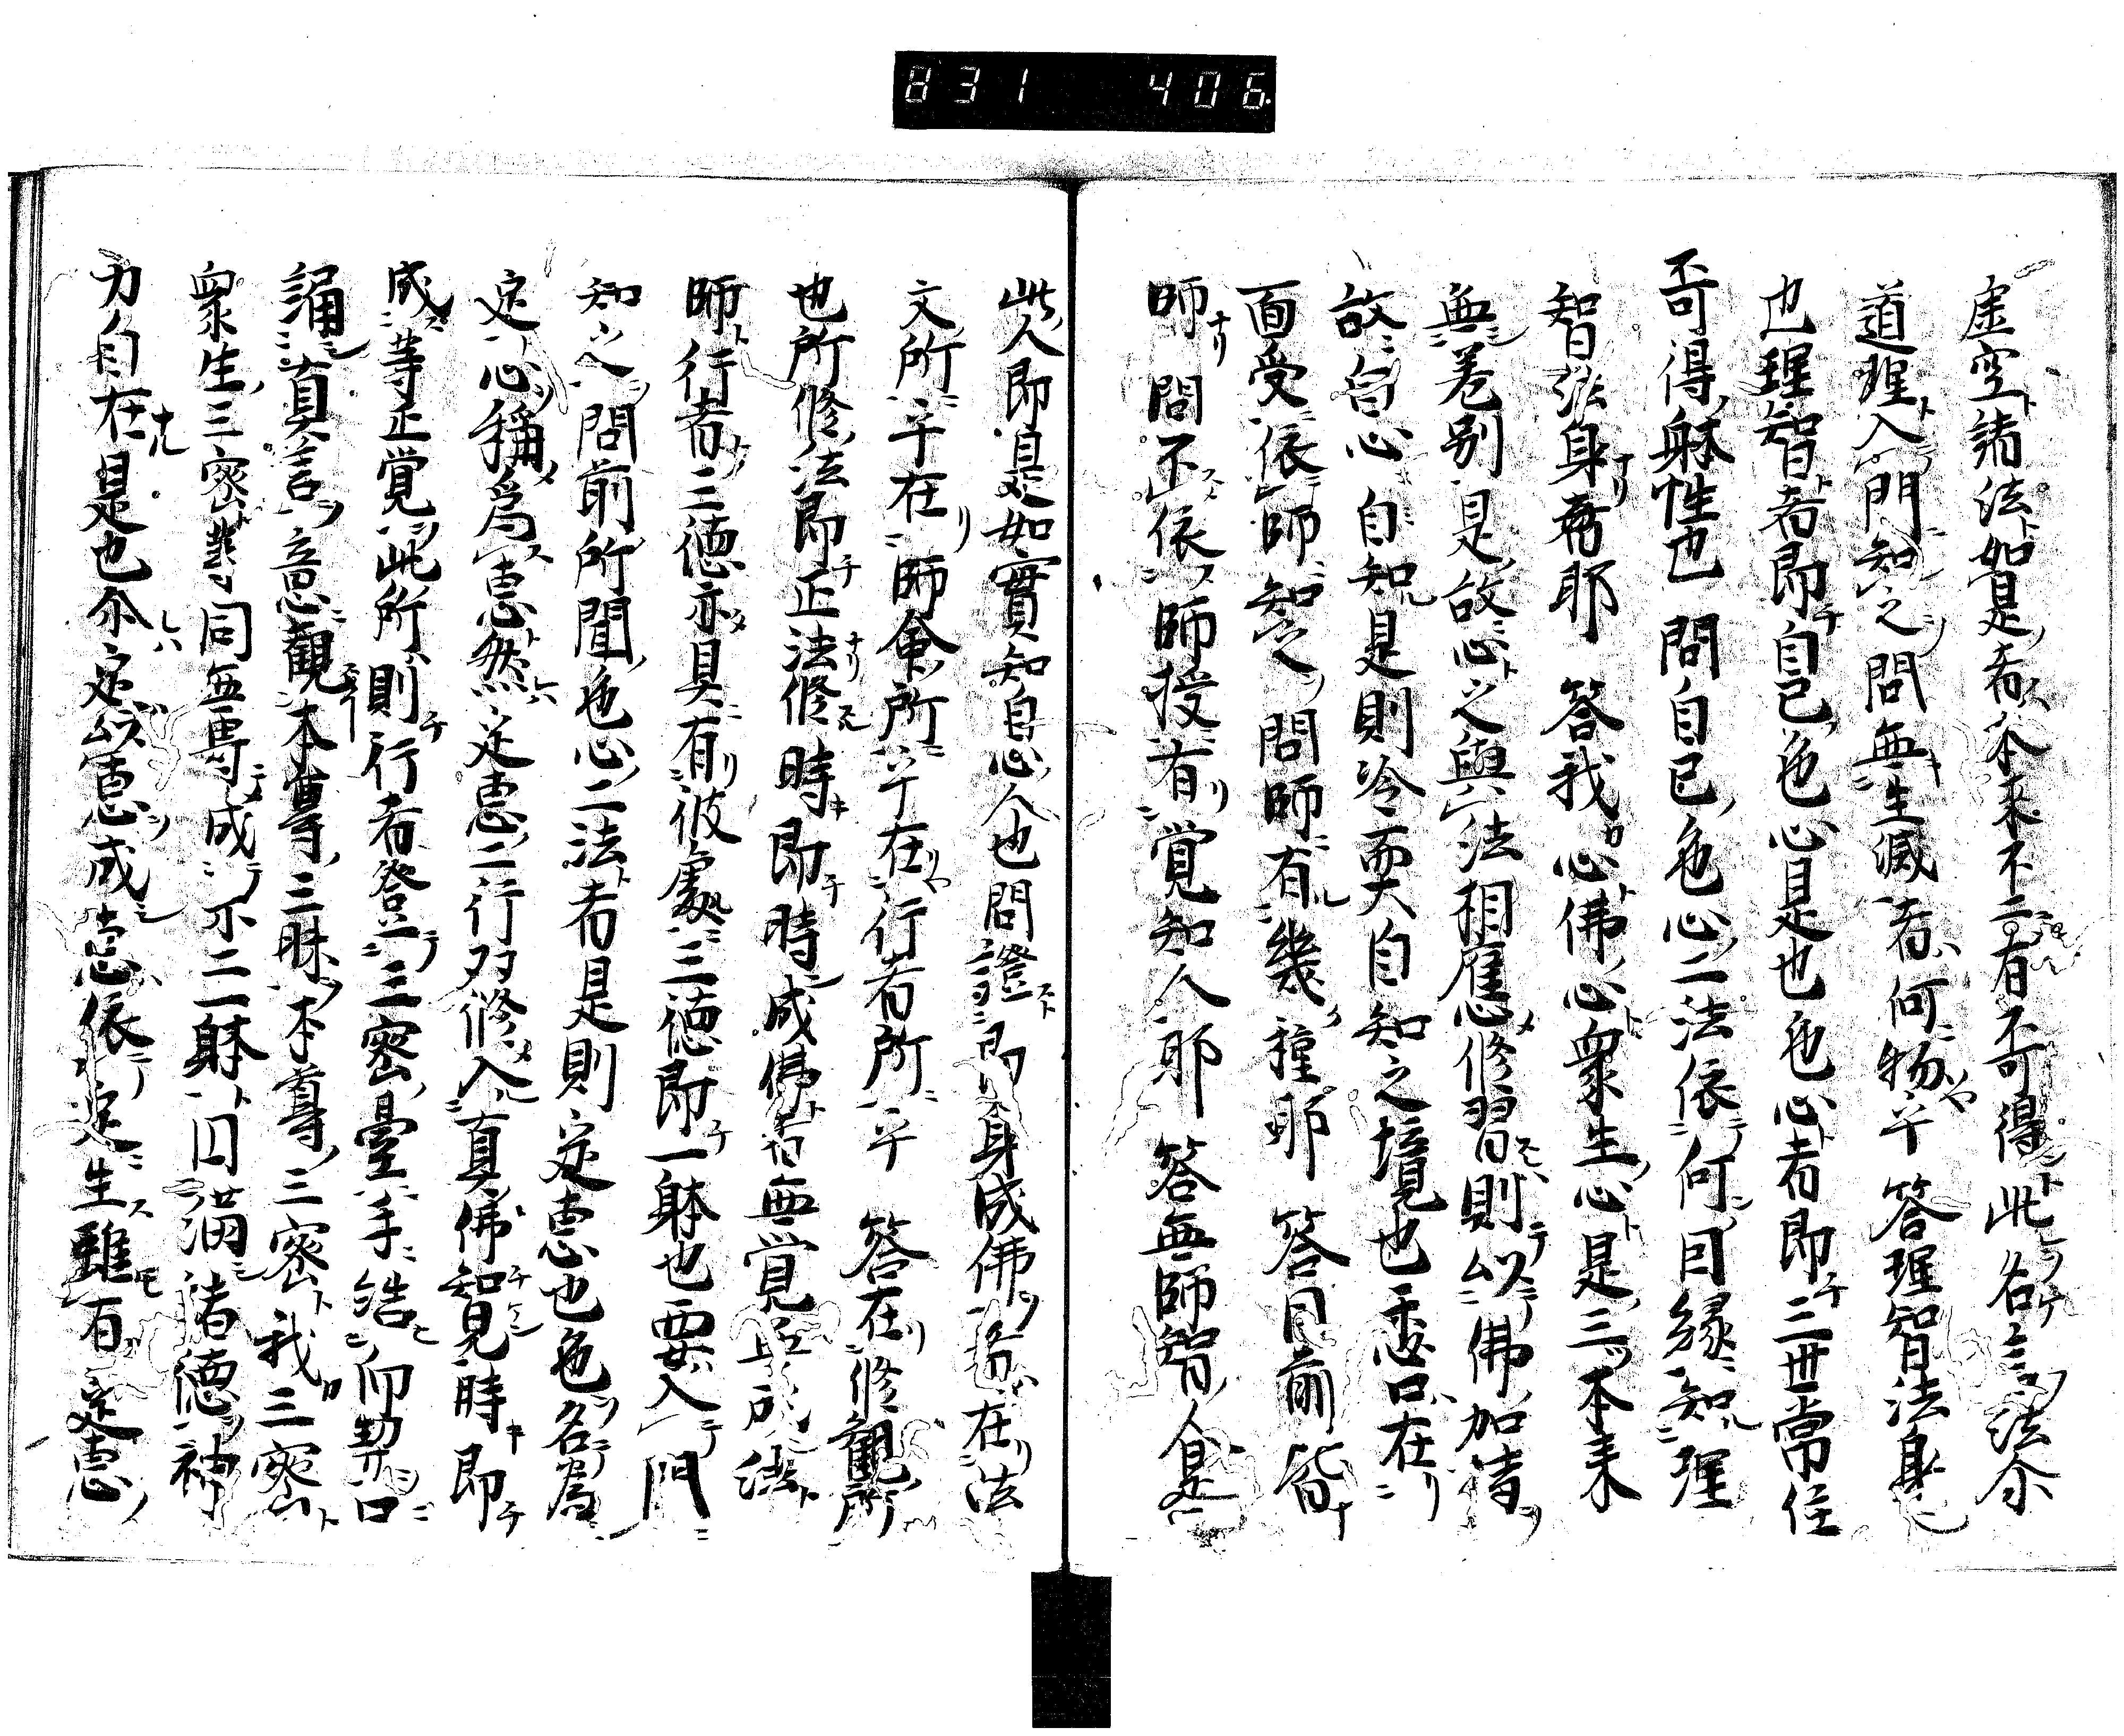 831 406
虚空諸法如是者本来不二有不可得此名言法尓
道理入門知之問無生滅者何物乎答理智法身
也理智者即自己色心是也色心者即三世常住
不可得躰性也問自己色心二法依何因縁知理
智法身耶答我心佛心衆生心是三本来
無差別是故心之與法相應修習則以佛加持
故自心自知是則冷煗自知之境也委口在
面受依師知之問師有幾種耶答目前皆
師問不依師授有覚知人耶答無師智人是
此人即是如實知自心人也問證即身成佛在法
文所乎在師傳所乎在行者所乎答在修観所
也所修法即正法修時即時成佛者無覚
師行者三徳亦具有彼處三徳即一躰也要入門
知之問前所聞色心二法者是則定恵也色名為
定心稱為恵然定恵二行双修入真佛知見時即
成等正覚此所則行者登三密臺手結印契口
誦真言意観本尊三昧本尊三密我三密
衆生三密等同無専成不二一躰円満諸徳神
力自在是也尓定以恵成恵依定生雖有定恵